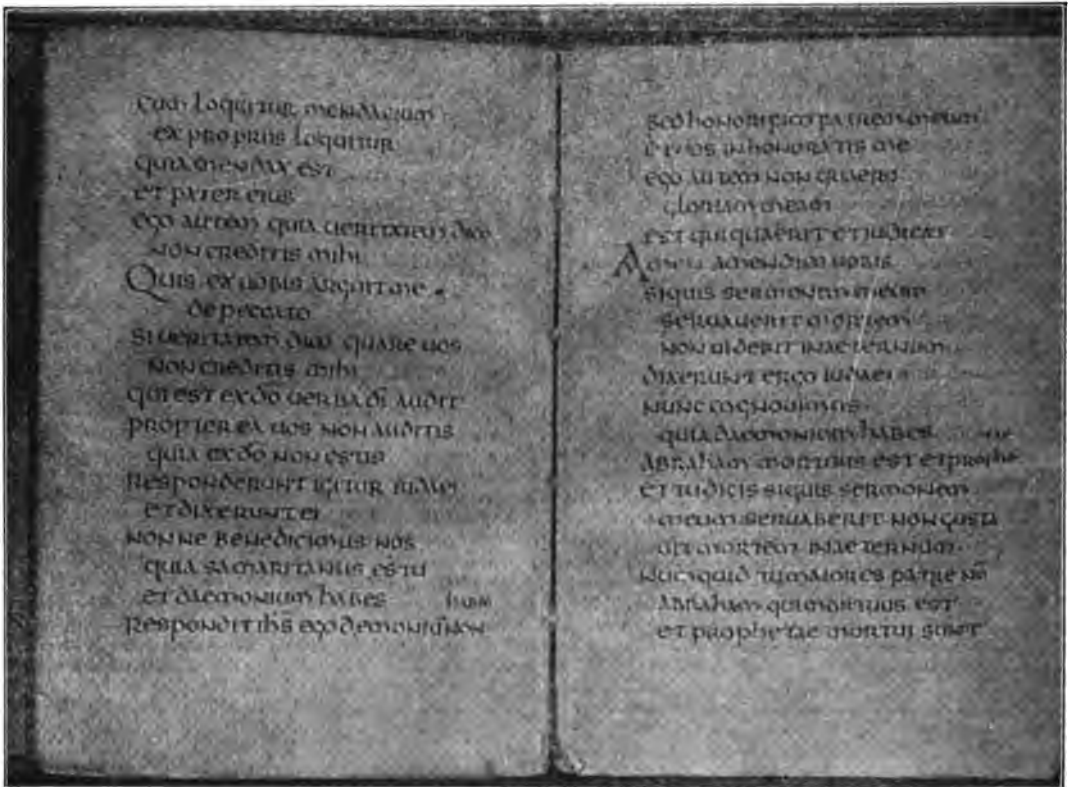 cum loquitur mendacium
ex propriis loquitur
quia mendax est
et pater eius
ego autem quia ueritatem dico
non creditis mihi
Quis ex uobis arguit me
de peccato
si ueritatem dico quare uos
non creditis mihi
qui est ex do uerba di audit
propterea uos non auditis
quia ex do non estis
Responderunt igitur iudaei
et dixerunt ei
nonne benedicimus nos
quia samaritanus es tu
et daemonium habes
habeo
Respondit ihs ego demoniū non
sed honorifico patrem meum
et uos inhonoratis me
ego autem non quaero
gloriam meam
est qui quaerit et iudicat
Amen amen dico uobis
siquis sermonem meum
seruauerit mortem
non uidebit in aeternum
dixerunt ergo iudaei
nunc cognouimus
quia daemonium habes
Abraham mortuus est et prophe
tae
et tu dicis siquis sermonem
meum seruauerit non gusta
bit mortem in aeternum
Numquid tu maior es patre no
Abraham qui mortuus est
et prophetae mortui sunt